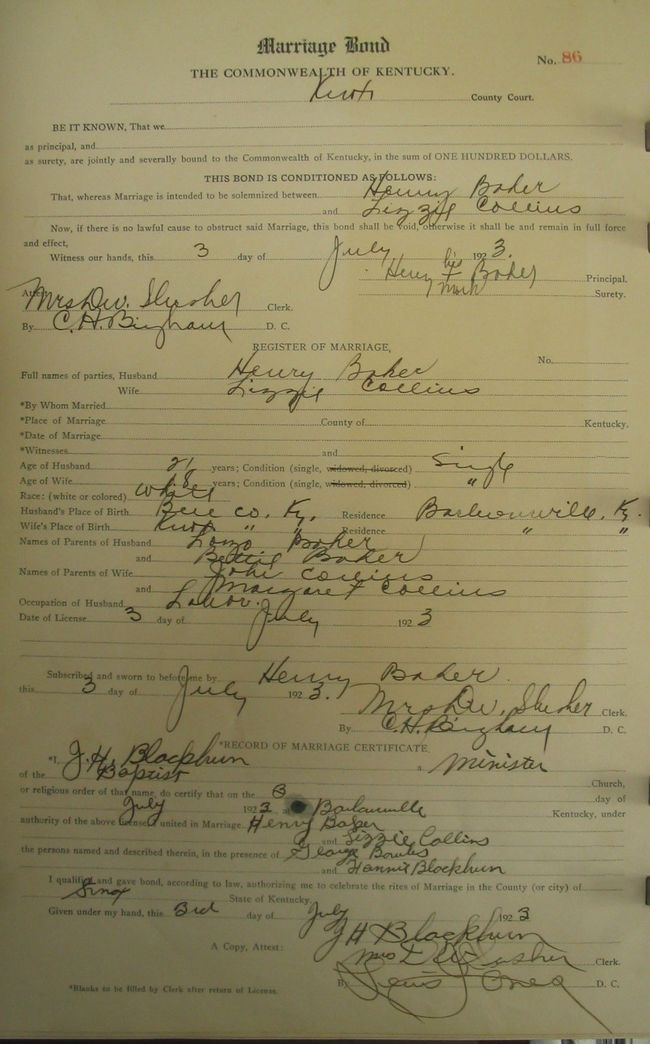 Marriage Bond
No. 86
THE COMMONWEALTH OF KENTUCKY.
Knox County Court.
BE IT KNOWN, That we
as principal, and
as surety, are jointly and severally bound to the Commonwealth of Kentucky, in the sum of ONE HUNDRED DOLLARS.
THIS BOND IS CONDITIONED AS FOLLOWS:
That, whereas Marriage is intended to be solemnized between Henry Baker
and Lizzie Collins
Now, if there is no lawful cause to obstruct said Marriage, this bond shall be void, otherwise it shall be and remain in full force
and effect,
Witness our hands, this 3 day of July 1923.
Henry his x mark Baker Principal.
Attest Surety.
Mrs D.W. Slusher Clerk.
By C. H. Bingham D. C.
REGISTER OF MARRIAGE,
No.
Full names of parties, Husband Henry Baker
Wife Lizzie Collins
*By Whom Married
*Place of Marriage County of Kentucky.
*Date of Marriage
*Witnesses and
Age of Husband 21 years; Condition (single, widowed, divorced) Single
Age of Wife 18 years; Condition (single, widowed, divorced) "
Race: (white or colored) White
Husband's Place of Birth Bell co. Ky. Residence Barbourville, Ky.
Wife's Place of Birth Knox " " Residence " "
Names of Parents of Husband Baker
and Bettie Baker
Names of Parents of Wife John Collins
and Margaret Collins
Occupation of Husband Labor.
Date of License 3 day of July 1923
Subscribed and sworn to before me by Henry Baker.
this 3 day of July 1923.
Mrs D.W. Slusher Clerk.
By C. H. Bingham D. C.
*RECORD OF MARRIAGE CERTIFICATE
*I, J. H. Blackburn a Minister
of the Baptist Church,
or religious order of that name, do certify that on the 3 day of
July 1923 at Barbourville Kentucky, under
authority of the above License, united in Marriage Henry Baker
and Lizzie Collins
the persons named and described therein, in the presence of George
and Blackburn
I qualified and gave bond, according to law, authorizing me to celebrate the rites of Marriage in the County (or city) of
Knox State of Kentucky
Given under my hand, this 3rd day of July 1923
J H Blackburn
A Copy, Attest: Mrs D W Slusher Clerk.
By Jones D. C.
*Blanks to be filled by Clerk after return of License.